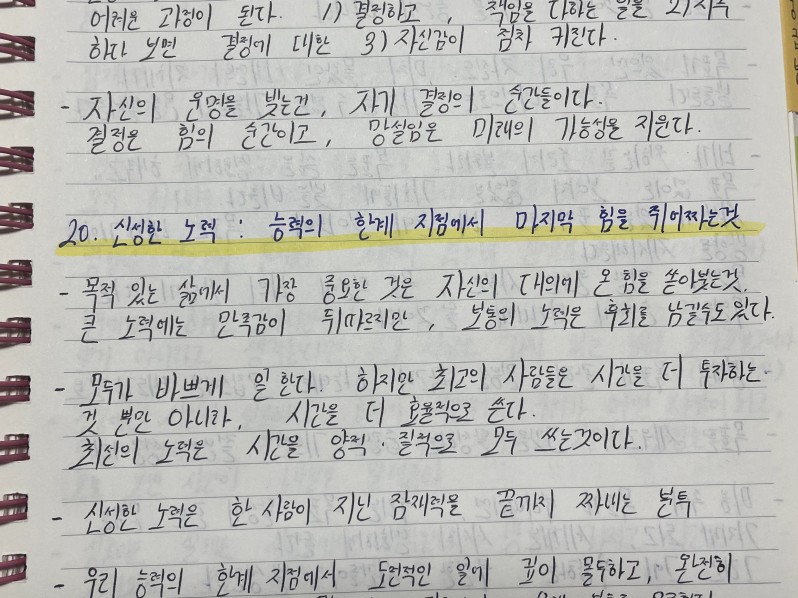 어려운 과정이 된다. 1) 결정하고, 책임을 다하는 일을 2) 지속
하다 보면 결정에 대한 3) 자신감이 점차 커진다.
- 자신의 운명을 빚는건, 자기 결정의 순간들이다.
결정은 힘의 순간이고, 망설임은 미래의 가능성을 지운다.
20. 신성한 노력 : 능력의 한계 지점에서 마지막 힘을 쥐어짜는것
- 목적 있는 삶에서 가장 중요한 것은 자신의 대의에 온 힘을 쏟아붓는것.
큰 노력에는 만족감이 뒤따르지만, 보통의 노력은 후회를 남길수도 있다.
- 모두가 바쁘게 일 한다. 하지만 최고의 사람들은 시간을 더 투자하는
것 뿐만 아니라, 시간을 더 효율적으로 쓴다.
최선의 노력은 시간을 양적·질적으로 모두 쓰는것이다.
- 신성한 노력은 한 사람이 지닌 잠재력을 끝까지 짜내는 분투
- 우리 능력의 한계 지점에서 도전적인 일에 깊이 몰두하고, 완전히